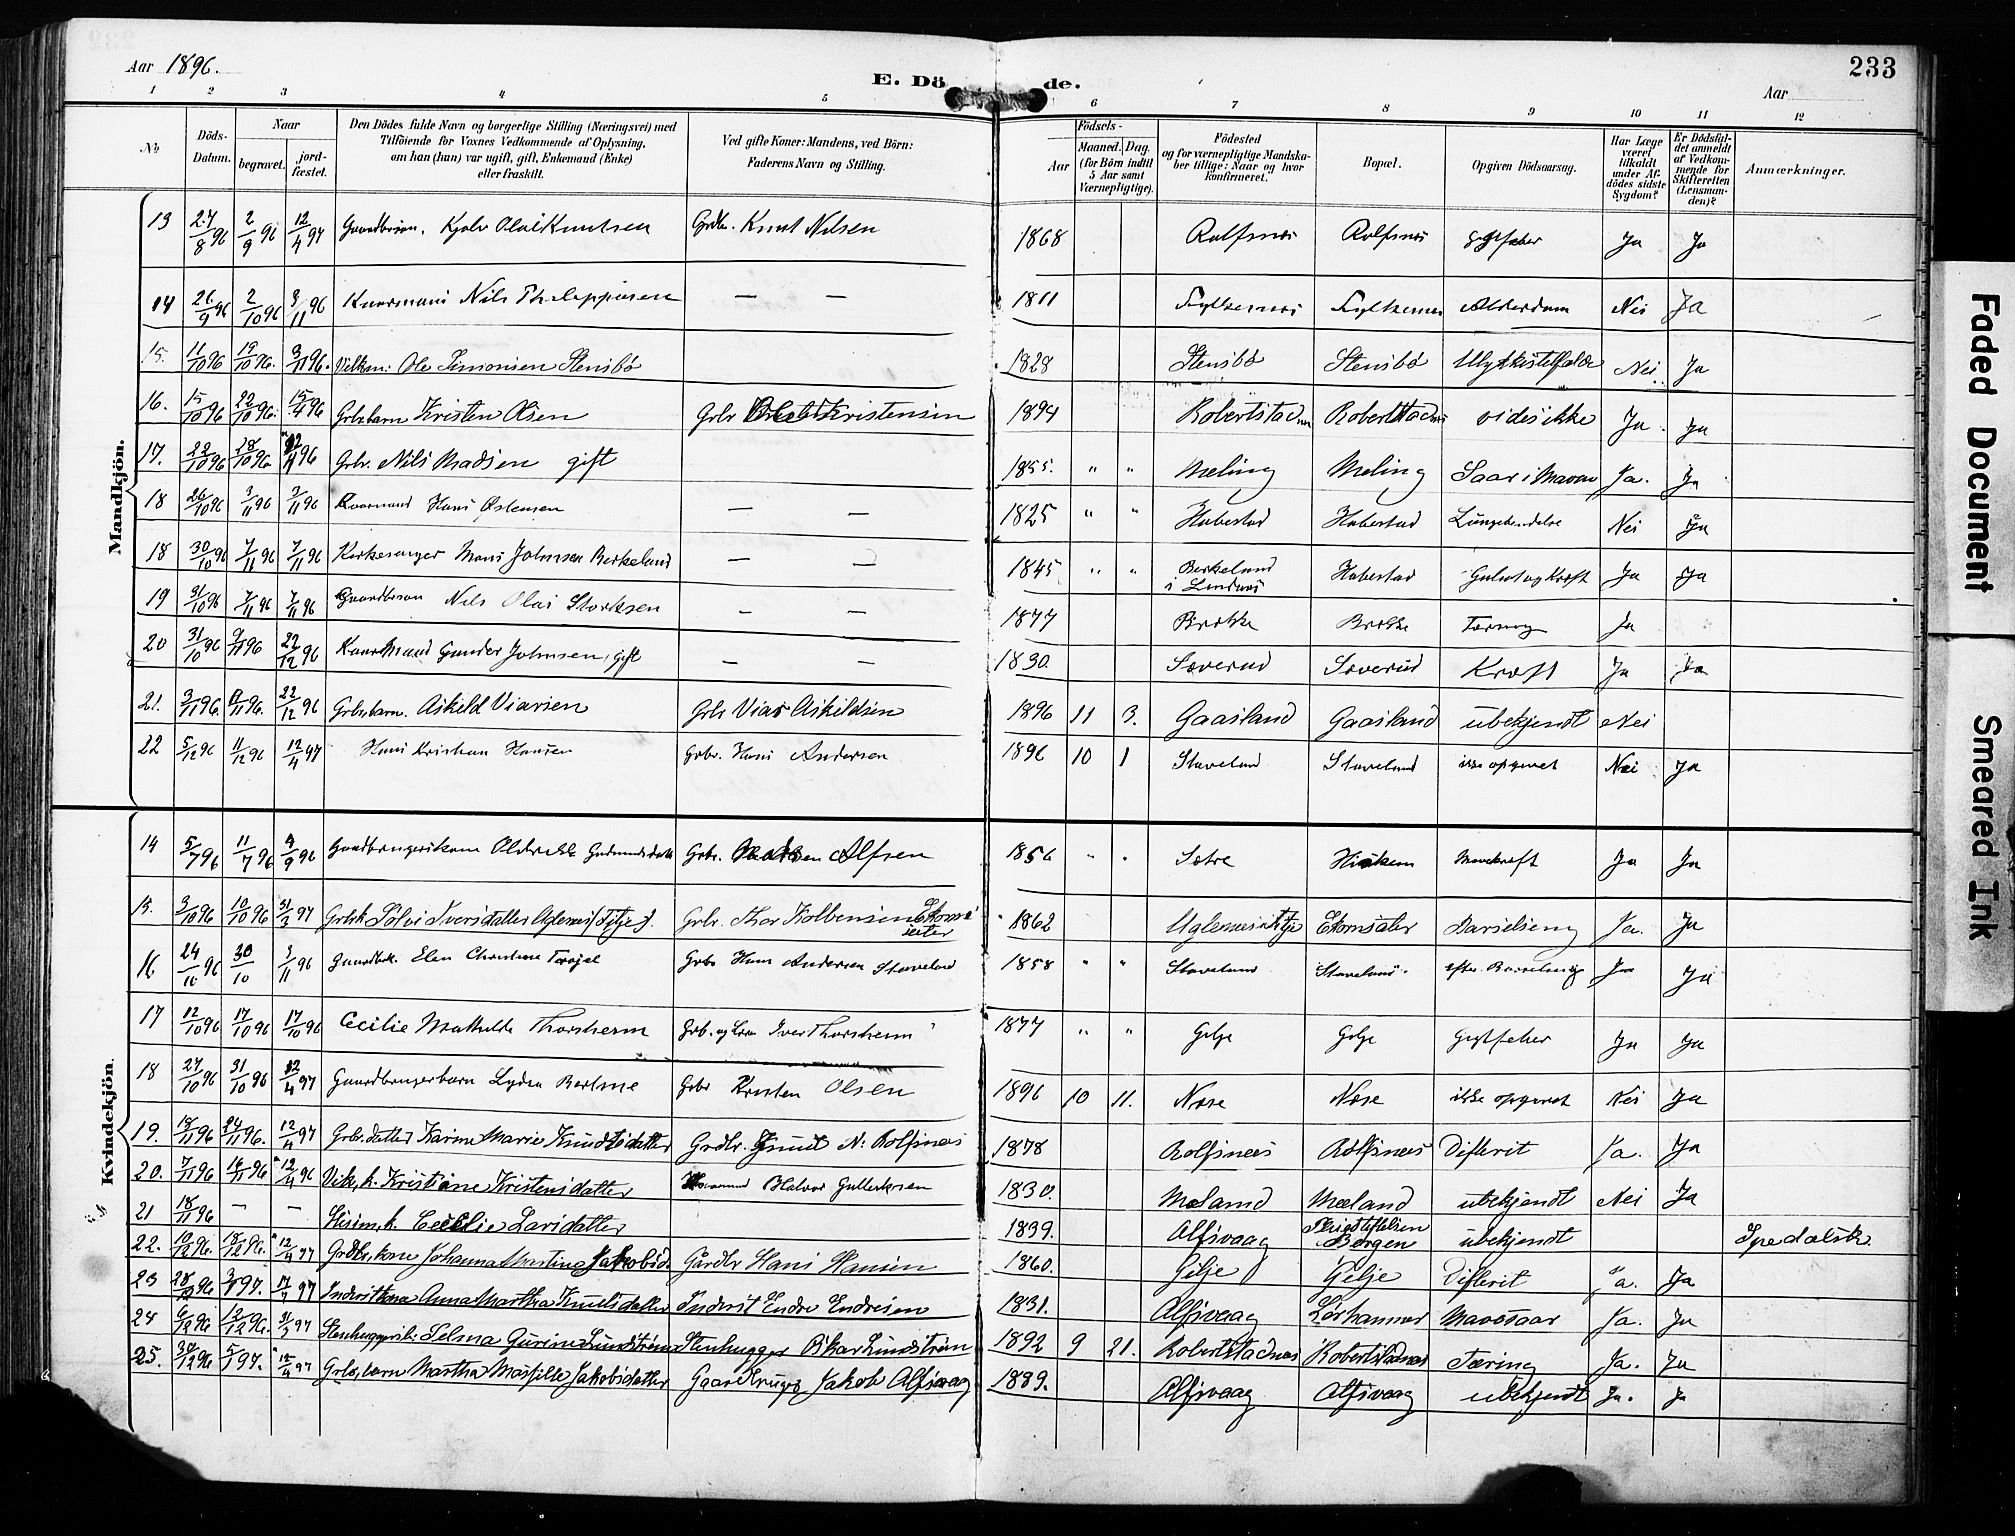 Aar 1896.
E. Döde.
Aar
233
1 2 3 4 5 6 7 8 9 10 11 12
No
Döds-Datum.
Naar
begravet.
jord-fæstet.
Den Dödes fulde Navn og borgerlige Stilling (Næringsvei) med
Tilföiende for Voxnes Vedkommende af Oplysning,
om han (hun) var ugift, gift, Enkemand (Enke)
eller fraskilt.
Ved gifte Koner: Mandens, ved Börn:
Faderens Navn og Stilling.
Födsels-
Aar
Maaned. Dag.
(for Börn indtil
5 Aar samt
Værnepligtige).
Födested
og for værnepligtige Mandska-
ber tillige: Naar og hvor
konfirmeret.
Bopæl.
Opgiven Dödsaarsag.
Har Læge
været
tilkaldt
under Af-
dödes sidste
Sygdom?
Er Dödsfal-
det anmeldt
af Vedkom-
mende for
Skifteretten
(Lensman-
den)?
Anmærkninger.
Mandkjön.
13 27/8 96 2/9 96 12/4 97 Olai Knutsen Grdbr. Knut Nilsen 1868 Rolfsnes Rolfsnes Ja Ja
14 26/9 96 2/10 96 3/11 96 Kaarmand Nils Philippusen — — 1811 Alderdom Nei Ja
15. 11/10 96 19/10 96. 3/11 96. Ole Simonsen Stensbö 1828 Stensbö Stensbö Ulykkestilfælde Nei Ja
16. 15/10 96 22/10 96. 15/4 96 Grbr.barn Kristen Olsen Grbr Kristensen 1894 Robertstadnes Robertstadnes vides ikke Ja Ja
17. 22/10 96 28/10 96. 12/4 96 Grbr. Nils Madsen gift 1855. " " Meling Meling Saar i Maven Ja. Ja
18 26/10 96 3/11 96 3/11 96 Kaarmand Hans Östensen — — 1825 " " Habestad Habestad Lungebetendelse Nei Ja
18 30/10 96 7/11 96 7/11 96 Kirkesanger Mons Johnsen Birkeland — — 1845 " " Birkeland Habestad Gulsot og Kræft Ja Ja
i Lindaas
19 31/10 96 7/11 96 7/11 96 Nils Olai Storksen — — 1877 Brekke Brekke Tæring Ja
20 31/10 96 9/11 96 22/12 96 Kaarmand Gunder Johnsen, gift — — 1830. Sæverud Sæverud Kræft Ja Ja
21. 3/11 96. 96. 22/12 96 Grbr.barn. Askild Viarsen Grbr Viar Askildsen 1896 11 3. Gaasland Gaasland ubekjendt Nei
22 5/12 96 11/12 96 12/4 97 Hans Kristian Hansen Grbr. Hans Andersen 1896 10 1 Staveland Staveland ikke opgivet Nei Ja
Kvindekjön.
14 5/7 96 11/7 96 9/9 96 Gaardbrugerkone Grbr. Alfsen 1856 " " Sætre Mavekræft Ja Ja
15. 3/10 96 10/10 96 31/3 97 Sölvi Iversdatter Grbr. Kolbensen 1862 Ekornsæter Barselseng Ja. Ja
16 24/10 96 30/10 3/11 96 Gaardbk. Elen Christine Grbr Hans Andersen Staveland 1858 " " Staveland Staveland. efter Barselseng Ja Ja
17 12/10 96 17/10 96 17/10 96 Cecilie Mathilde Thorsheim Iver Thorsheim 1877 " " Gilje Gilje Gigtfeber Ja Ja
18 27/10 96 31/10 96 12/4 97 Gaardbrugerbarn Lydia Bertine Grbr Kristen Olsen 1896 10 11. Næse Næse ikke opgivet Nei Ja
19. 18/11 96 24/11 96. 12/4 97 Grbr.datter Karine Marie Knudsdatter Grdbr. Knut N. Rolfsnes 1878 Rolfsnes Rolfsnes Difterit Ja. Ja
20. 7/11 96 14/11 96 12/4 96 Kristiane Kristensdatter Halvor Gulleksen 1830. Mæland Mæland ubekjendt Nei Ja
21 18/11 96 — — Cecilie Larsdatter 1839. Alfsvaag Bergen ubekjendt Spedalsk.
22. 10/12 96. 18/12 96. 12/4 97 Grdbr.kone Johanna Martine Jakobsd. Gårdbr Hans Hansen 1860. Gilje Gilje Difterit Ja. Ja
23 97. 97 Inderstkone Anna Martha Knutsdatter Inderst Endre Endresen 1831. Alfsvaag Mavesaar Ja. Ja
24 6/12 96 12/12 96. 31/3 97 Selma Gurine Lundström Stenhugger Oskar Lundström 1892 9 21. Robertstadnes Robertstadnes Tæring Ja. Ja
25. 30/12 96 5/1 97. 12/4 97 Grbr.barn Martha Jakobsdatter Jakob Alfsvaag 1889. Alfsvaag Alfsvaag ubekjendt Ja. Ja
Faded Document
Smeared Ink